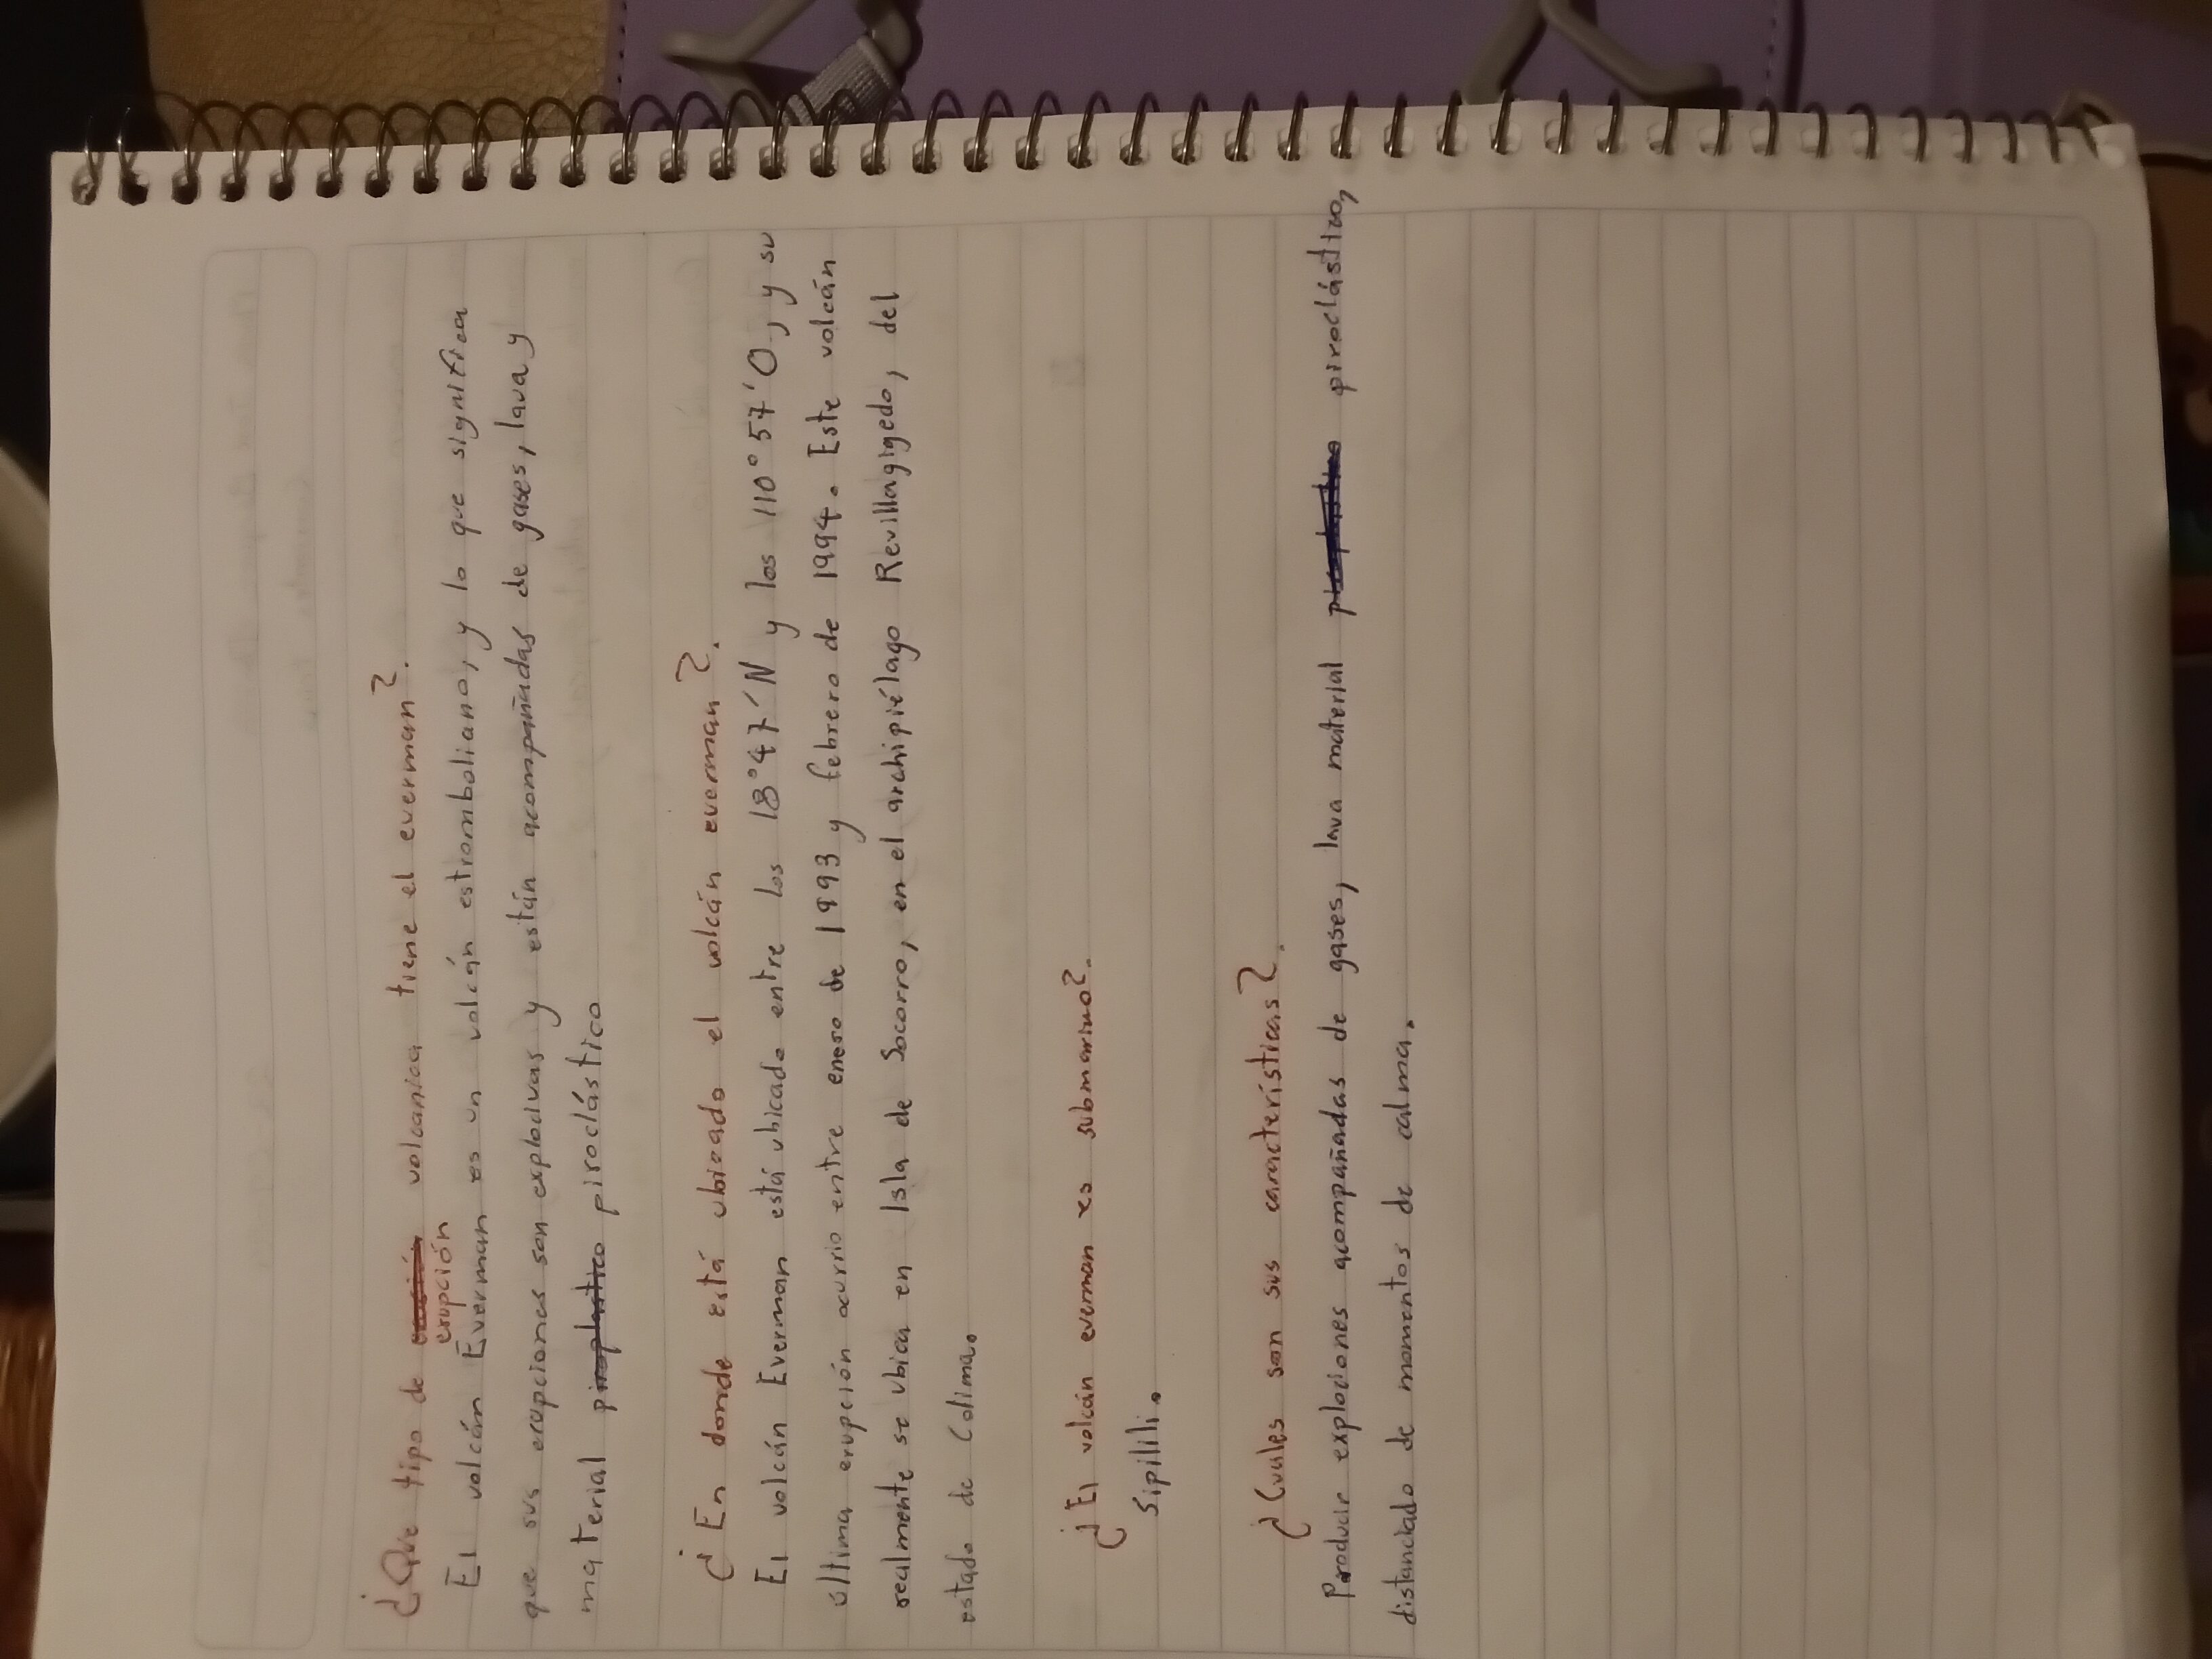 ¿Que tipo de erupción volcanica tiene el everman?.
El volcán Everman es un volcán estromboliano, y lo que significa
que sus erupciones son explocivas y están acompañadas de gases, lava y
material piroplastico piroclástico
¿En donde está ubicado el volcán everman?.
El volcán Everman está ubicado entre los 18°47'N y los 110°57'O, y su
última erupción ocurrio entre enero de 1993 y febrero de 1994. Este volcán
realmente se ubica en Isla de Socorro, en el archipiélago Revillagigedo, del
estado de Colima.
¿El volcán everman es submarino?.
Sipilili.
¿Cuales son sus características?.
Producir explociones acompañadas de gases, lava material piroclástico,
distanciado de momentos de calma.